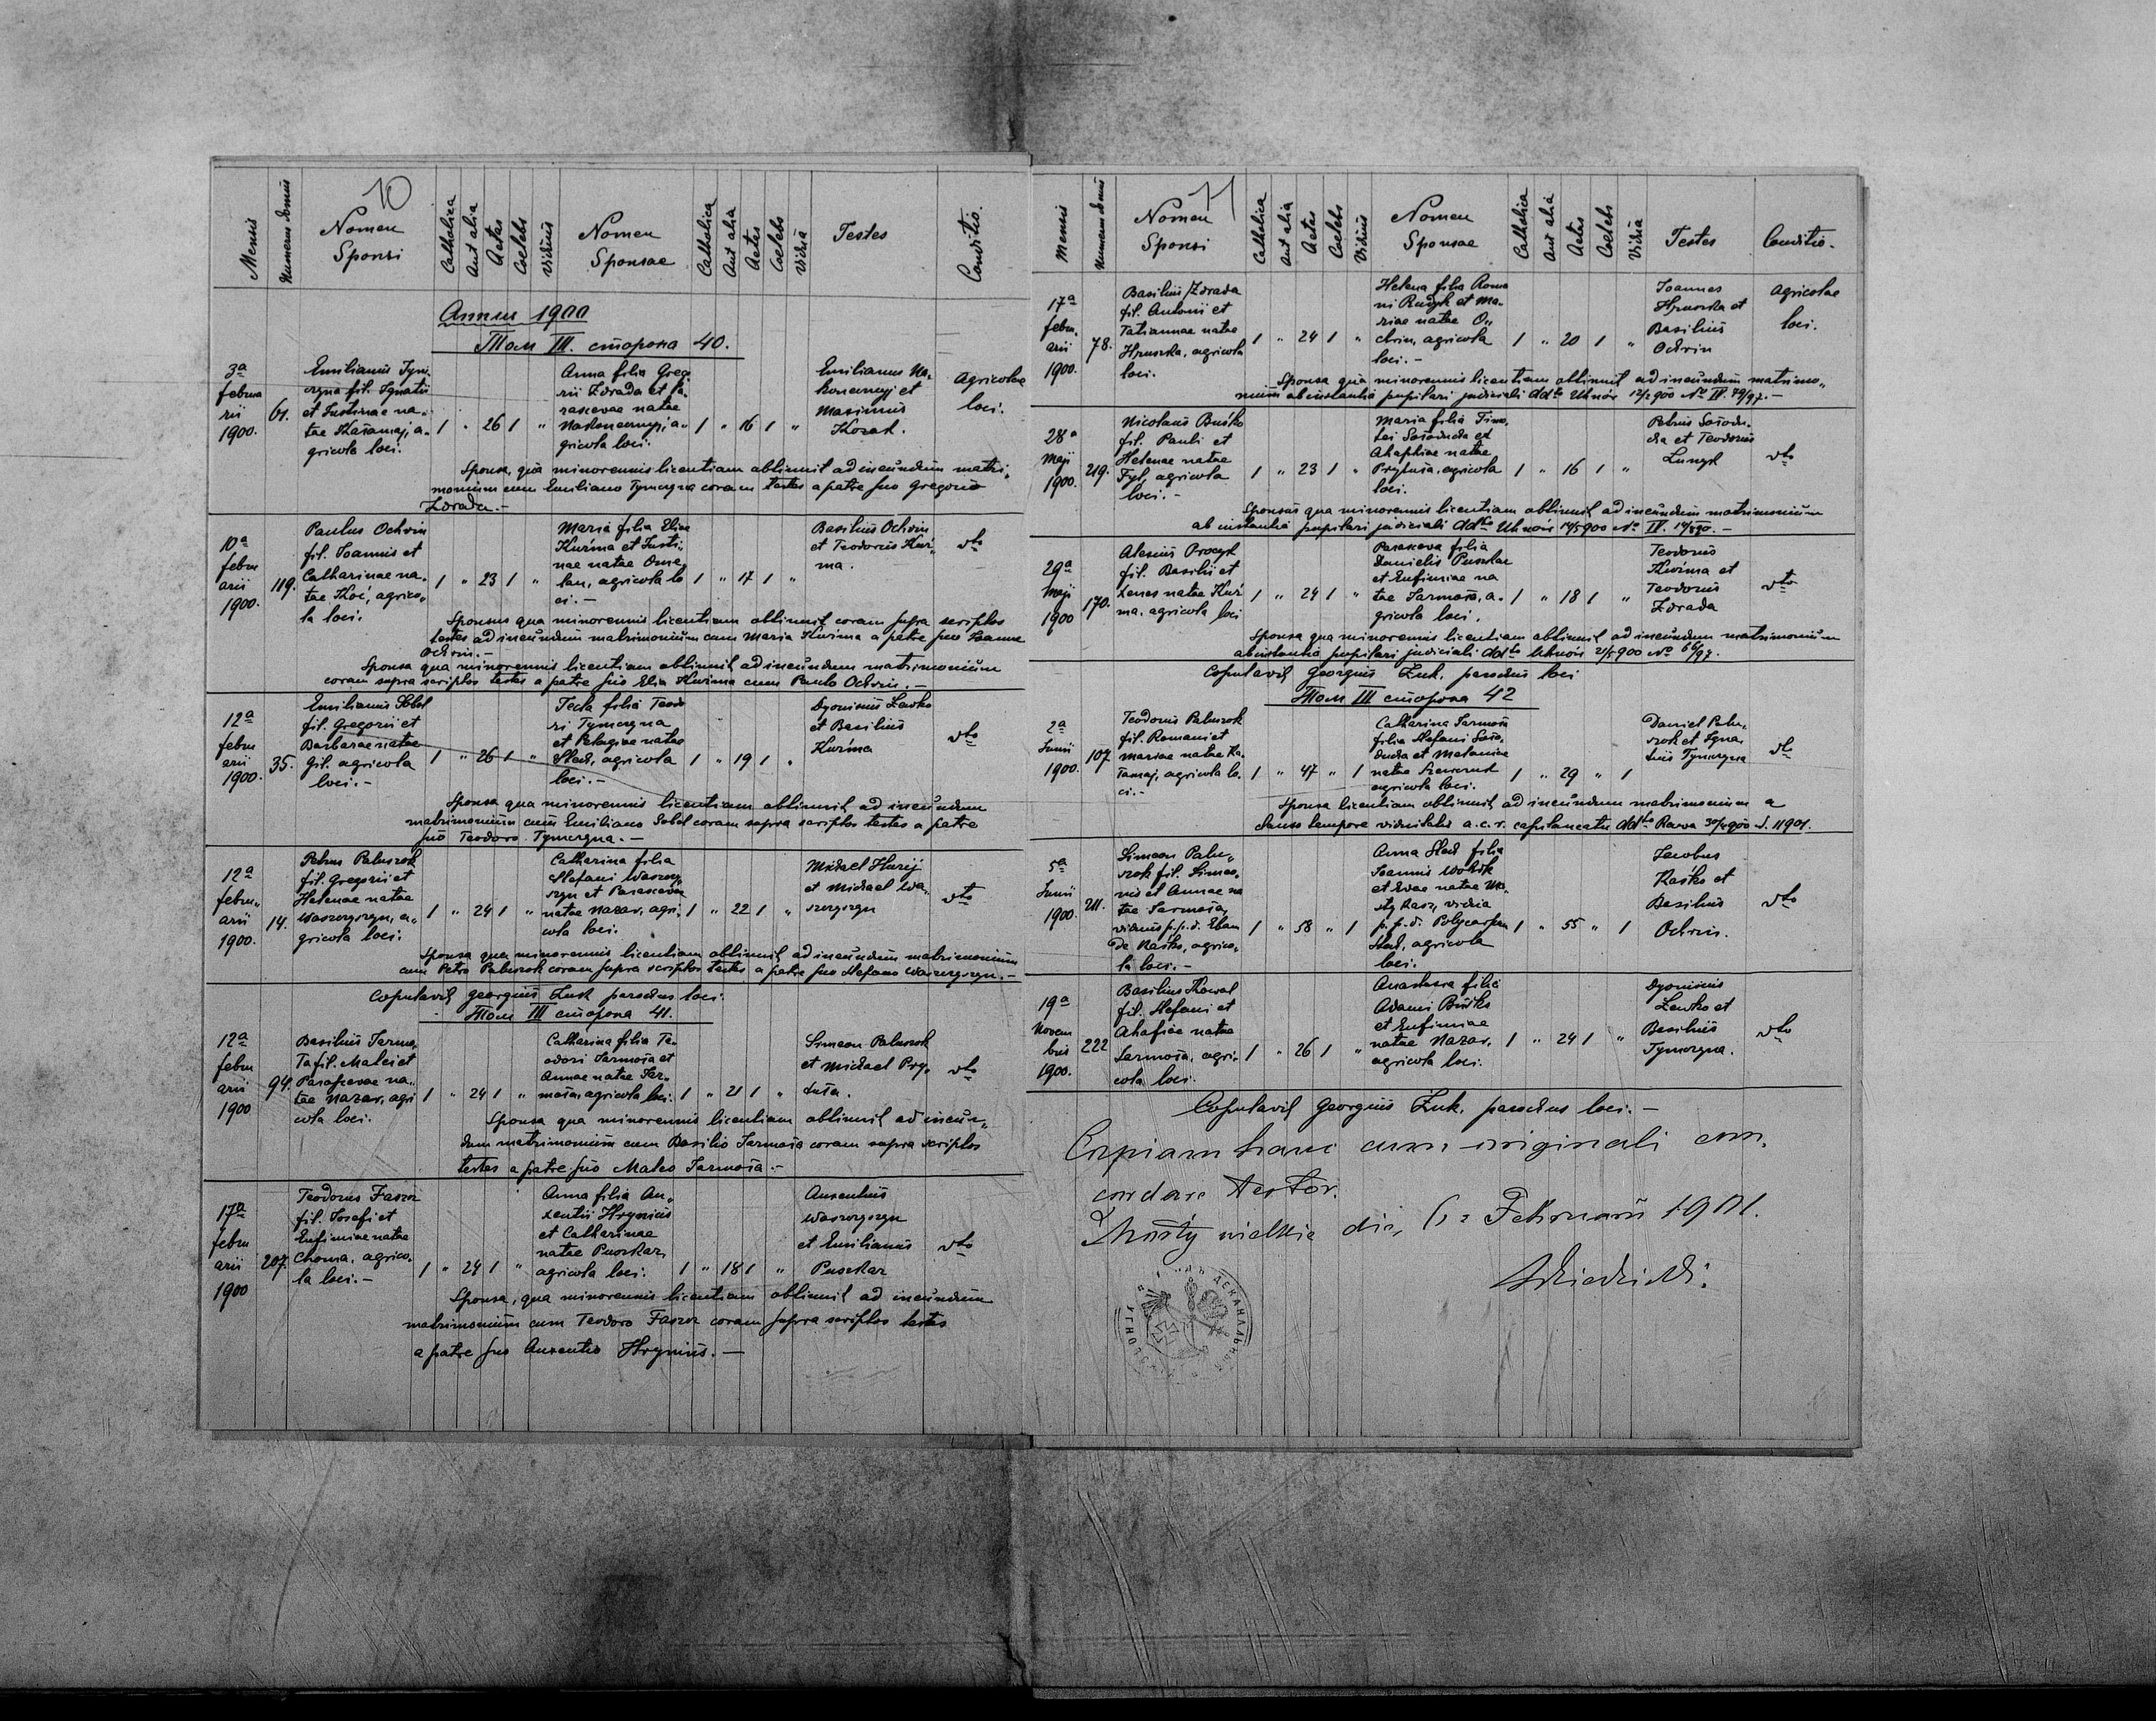 10
Mensis
Numerus domus
Nomen
Sponsi
Catholica
Aut alia
Aetas
Coelebs
Viduus
Nomen
Sponsae
Catholica
Aut alia
Aetas
Coelebs
Vidua
Testes
Conditio.
Annus 1900
Том III. сторона 40.
3a
februa
rii
1900.
61.
Emilianus Tym
orzna fil. Ignatii
et Justinae na„
tae Kasamaj, a„
gricola loci.
1 „ 26 1 „
Anna filia Greg
rii Zdrada et Pa„
rascevae natae
Nakonecznyj, a„
gricola loci.
1 „ 16 1 „
Emilianus Na„
konecznyj et
Maximus
Kozak.
Agricolae
loci.
Sponsa, qua minorennis licentiam obtinuit ad ineundum matri„
monium cum Emiliano Tymorzna coram testes a patre suo Gregorio
Zdrada.-
10a
febru
arii
1900.
119.
Paulus Ochrin
fil. Joannis et
Catharinae na„
tae Koć, agrico„
la loci.
1 „ 23 1 „
Maria filia Eliae
Kuźma et Justi„
nae natae Ome„
lan, agricola lo
ci.-
1 „ 17 1 „
Basilius Ochrin
et Teodorus Kuź„
ma.
dto
Sponsus qua minorennis licentiam obtinuit coram supra scriptos
testes ad ineundum matrimonium cum Maria Kuźma a patre suo Joanne
Ochrin.-
Sponsa qua minorennis licentiam obtinuit ad ineundum matrimonium
coram supra scriptos testes a patre suo Elia Kuźma cum Paulo Ochrin.-
12a
febru
arii
1900.
35.
Emilianus Sobol
fil. Gregorii et
Barbarae natae
Gil, agricola
loci.-
1 „ 26 1 „
Tecla filia Teodo
ri Tymorzna
et Pelagiae natae
Slad, agricola
loci.-
1 „ 19 1 „
Dyonisius Lewko
et Basilius
Kuźma
dto
Sponsa qua minorennis licentiam obtinuit ad ineundum
matrimonium cum Emiliano Sobol coram supra scriptos testes a patre
suo Teodoro Tymorzna.-
12a
febru„
arii
1900.
14.
Petrus Paluszok
fil. Gregorii et
Helenae natae
Waszczyszyn, a„
gricola loci.
1 „ 24 1 „
Catharina filia
Stefani Waszczy„
szyn et Parascevae
natae Nazar, agri„
cola loci.
1 „ 22 1 „
Michael Hurij
et Michael Wa„
szczyszyn
dto
Sponsa qua minorennis licentiam obtinuit ad ineundum matrimonium
cum Petro Paluszok coram supra scriptos testes a patre suo Stefano Waszczyszyn.-
Copulavit Georgius Żuk parochus loci.
Том III сторона 41.
12a
febru
arii
1900
94.
Basilius Jarmo„
ła fil. Matei et
Parascevae na„
tae Nazar, agri
cola loci.
1 „ 24 1 „
Catharina filia Te„
odori Jarmoła et
Annae natae Jar„
moła, agricola loci.
1 „ 21 1 „
Simeon Paluszok
et Michael Pry„
tuła.
dto
Sponsa qua minorennis licentiam obtinuit ad ineun„
dum matrimonium cum Basilio Jarmoła coram supra scriptos
testes a patre suo Mateo Jarmoła.-
17a
febru
arii
1900
207.
Teodorus Faszcz
fil. Josefi et
Eufimiae natae
Choma, agrico„
la loci.-
1 „ 24 1 „
Anna filia Au„
xentii Hrynius
et Catharinae
natae Puszkar,
agricola loci.
1 „ 18 1 „
Auxentius
Waszczyszyn
et Emilianus
Puszkar
dto
Sponsa, qua minorennis licentiam obtinuit ad ineundum
matrimonium cum Teodoro Faszcz coram supra scriptos testes
a patre suo Auxentio Hrynius.-
11
Mensis
Numerus domus
Nomen
Sponsi
Catholica
Aut alia
Aetas
Coelebs
Viduus
Nomen
Sponsae
Catholica
Aut alia
Aetas
Coelebs
Vidua
Testes
Conditio.
17a
febru„
arii
1900.
78.
Basilius Zdrada
fil. Antonii et
Tatiannae natae
Hruszka, agricola
loci.
1 „ 24 1 „
Helena filia Roma
ni Rudyk et Ma„
riae natae O„
chrin, agricola
loci.-
1 „ 20 1 „
Joannes
Hruszka et
Basilius
Ochrin
Agricolae
loci.
Sponsa qua minorennis licentiam obtinuit ad ineundum matrimo„
nium ab instantia pupilari judiciali ddto Uhnów 12/2 900 No IV. 79/97.-
28a
Maji
1900.
219.
Nicolaus Buśko
fil. Pauli et
Helenae natae
Fyl, agricola
loci.-
1 „ 23 1 „
Maria filia Timo„
tei Sołoducha et
Ahaphiae natae
Prytuła, agricola
loci.
1 „ 16 1 „
Petrus Sołodu„
cha et Teodorus
Lunyk
dto
Sponsus qua minorennis licentiam obtinuit ad ineundum matrimonium
ab instantia pupilari judiciali ddto Uhnów 14/5 900 No IV.
29a
Maji
1900
170.
Alexius Procyk
fil. Basilii et
Xenes natae Kuź
ma, agricola loci
1 „ 24 1 „
Parasceva filia
Danielis Puszkar
et Eufimiae na
tae Jarmoła, a„
gricola loci.
1 „ 18 1 „
Teodorus
Kuźma et
Teodorus
Zdrada
dto
Sponsa qua minorennis licentiam obtinuit ad ineundum matrimonium
ab instantia pupilari judiciali ddto Uhnów 21/5 900 No
Copulavit Georgius Żuk, parochus loci
Том III сторона 42
2a
Junii
1900.
107
Teodorus Paluszok
fil. Romani et
Mariae natae Ka„
łamaj, agricola lo„
ci.-
1 „ 47 „ 1
Catharina Jarmoła
filia Stefani Soło„
ducha et Melaniae
natae Szewczuk
agricola loci.
1 „ 29 „ 1
Daniel Palu„
szok et Igna„
tius Tymorzna
dto
Sponsa licentiam obtinuit ad ineundum matrimonium a
clauso tempore viduitatis a.c.r. capitaneatu ddto Rawa 30/5 900 L. 11901.
5a
Junii
1900.
211.
Simeon Palu„
szok fil. Simeo„
nis et Annae na
tae Jarmoła,
viduus p.p.d.
Raśko, agrico„
la loci.-
1 „ 58 „ 1
Anna Slad filia
Joannis Wowk
et Evae natae
vidua
p.p.d. Polycarpum
Slad, agricola
loci.
1 „ 55 „ 1
Jacobus
Raśko et
Basilius
Ochrin.
dto
19a
Novem
bris
1900.
222
Basilius Kowal
fil. Stefani et
Ahafiae natae
Jarmoła, agri„
cola loci.
1 „ 26 1 „
Anastasia filia
Adami Buśko
et Eufimiae
natae Nazar,
agricola loci.
1 „ 24 1 „
Dyonisius
Lewko et
Basilius
Tymorzna.
dto
Copulavit Georgius Żuk, parochus loci.-
Copiam hanc cum originali con„
cordare testor.
Mosty wielkie die, 6 Februarii 1901.